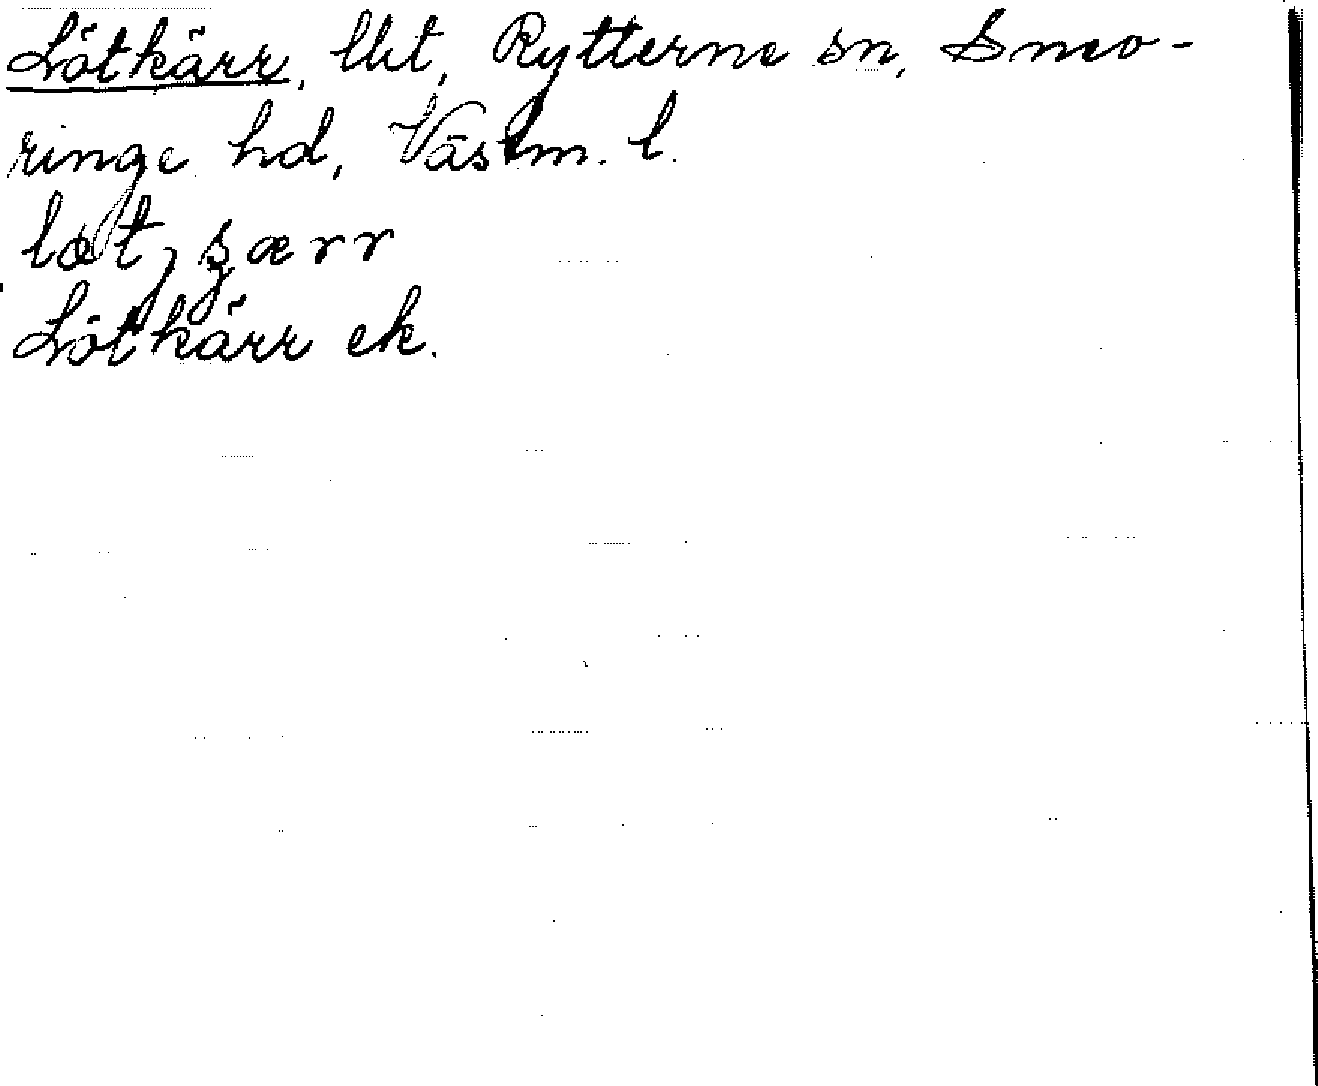 Lötkärr, lht, Rytterne sn, Snev-
ringe hd, Västm. l.
Lötkärr ek.